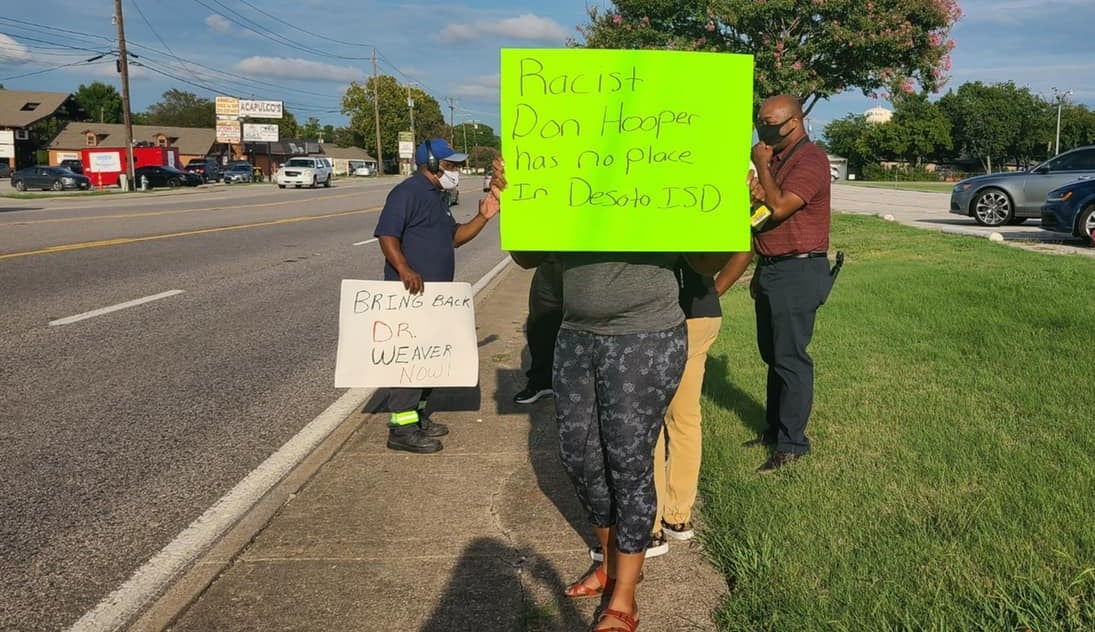 Racist
Don Hooper
has no place
In Desoto ISD
BRING BACK
DR.
WEAVER
NOW!
ACAPULCO'S